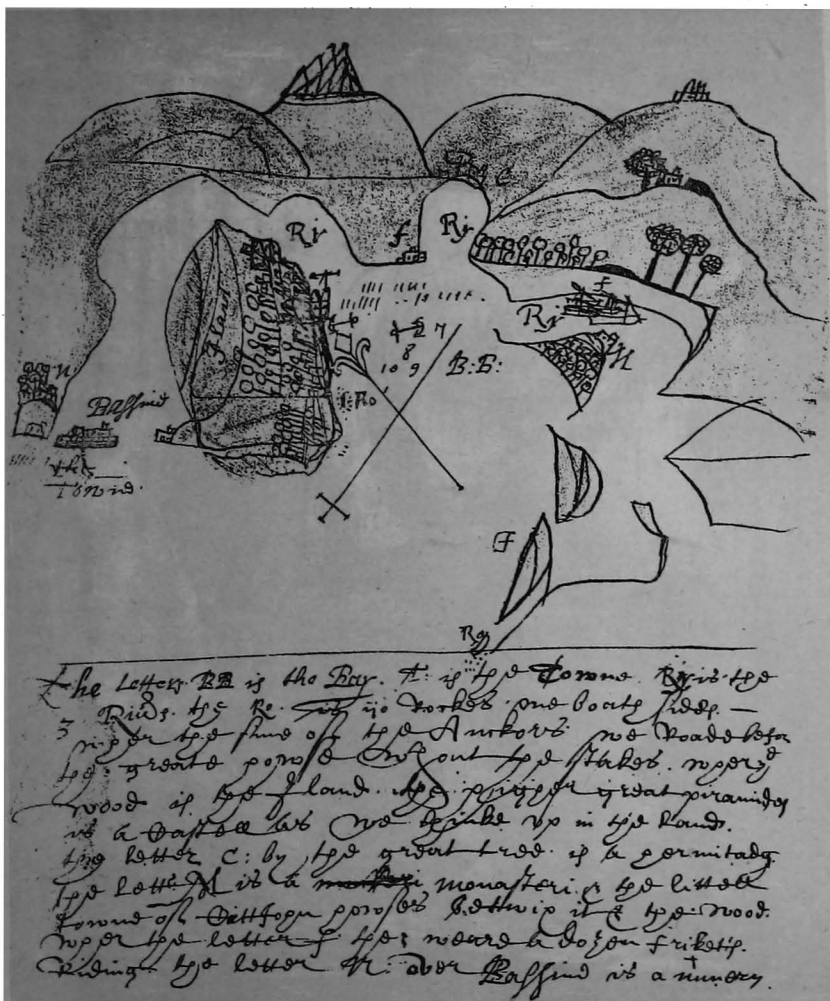 Ry C
Ry
f
Ry
f
Iland
Ry
27
8
10 9
B:B:
M
n
Bassind
Ro
the
Towne
F
Ro
the Letters BB is the Bay. T: is the Towne Ry is the
3 Rivers the Ro. is ye Rockes one boath sides.
wher the signe of the Anckors we Roade befor
the greate howse without the stakes. wher ye
wood is the Iland. the higher great piramides
is a Castell as we thinke up in the Land.
the letter C: by the great tree is a hermitadg
the letter M is a monasteri & the littell
towne of howses betwip it & the wood.
wher the letter f ther weare a dozen frikets
Riding the letter N: over Bassind is a nunery.